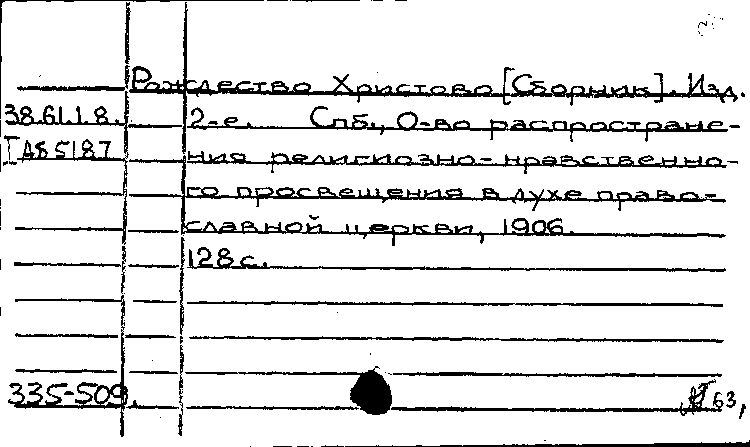 Рождество Христово [Сборник]. Изд.
38.61.1.8. 2-е. Спб., О-во распростране-
IА85187 ния религиозно-нравственно-
го просвещения в духе право-
славной церкви, 1906.
128 с.
335-509. 63,